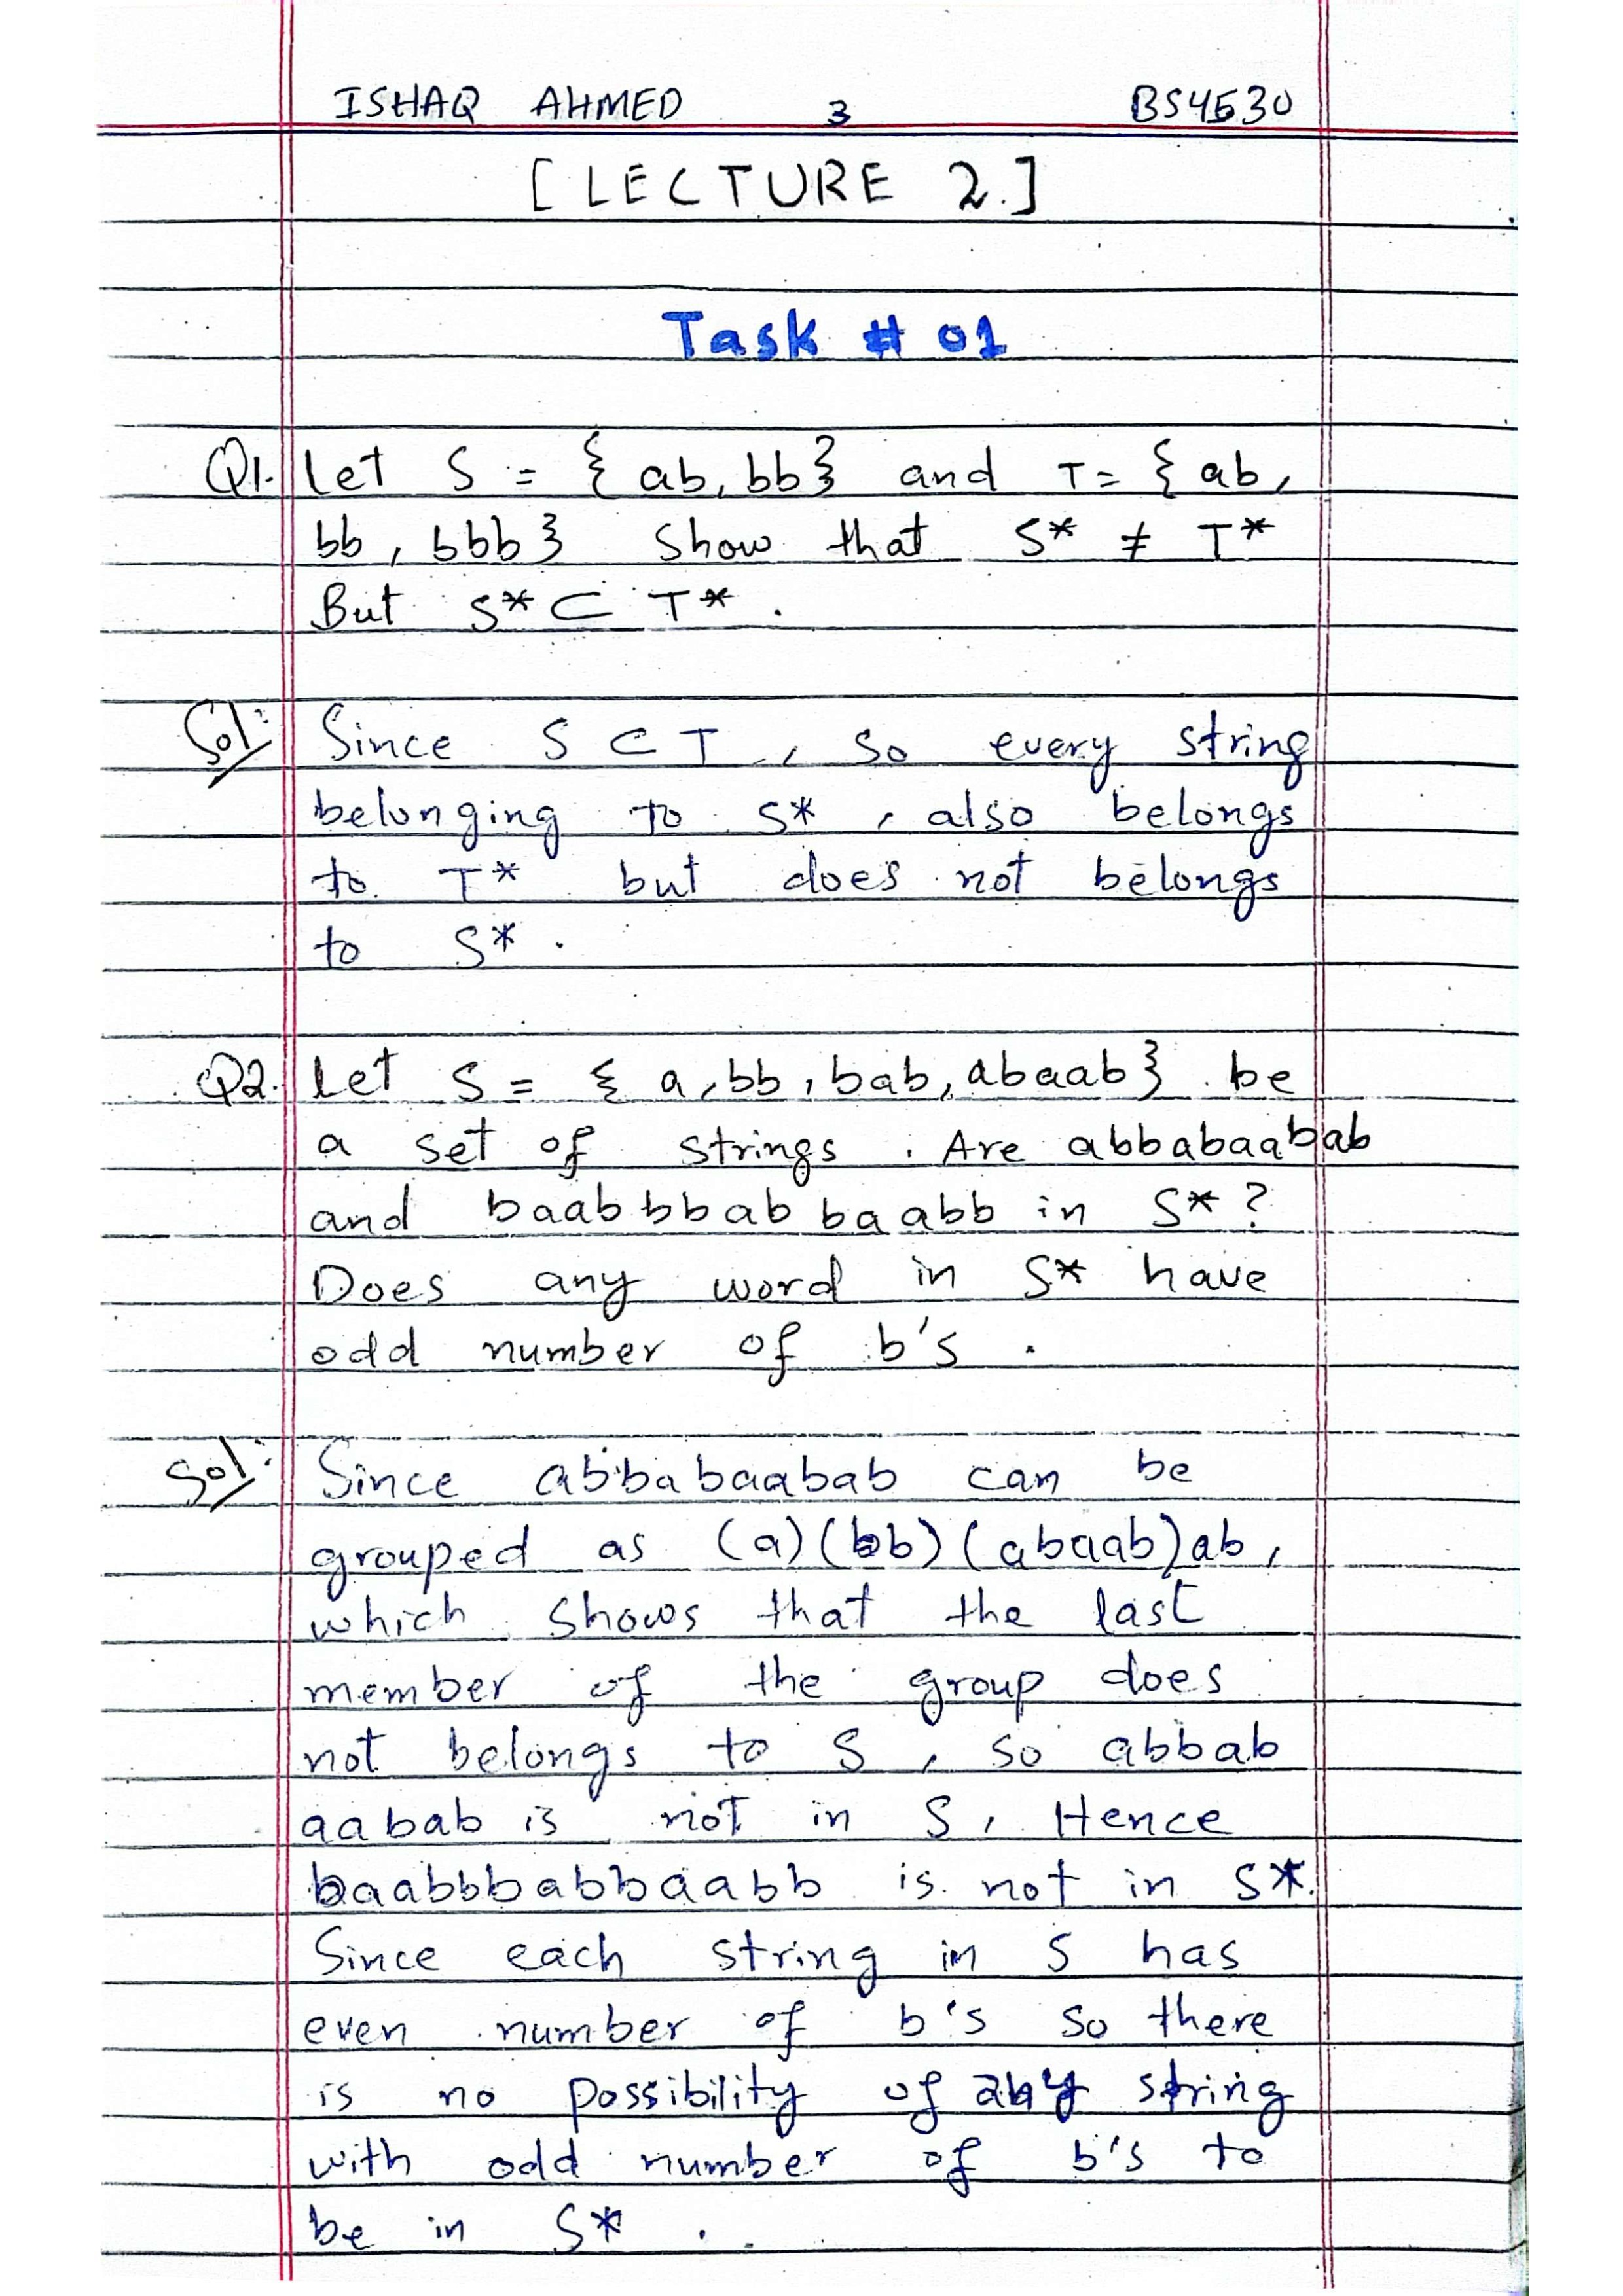 ISHAQ AHMED 3 BS4530
[LECTURE 2.]
Task # 01
Q1. Let S = { ab, bb} and T= { ab,
bb, bbb} Show that S* ≠ T*
But S* ⊂ T* .
Sol: Since S ⊂ T , So every string
belonging to S* , also belongs
to T* but does not belongs
to S* .
Q2. Let S = { a, bb, bab, abaab} be
a set of strings . Are abbabaabab
and baabbbabbaabb in S* ?
Does any word in S* have
odd number of b's .
Sol: Since abbabaabab can be
grouped as (a)(bb)(abaab)ab,
which shows that the last
member of the group does
not belongs to S , so abbab
aabab is not in S, Hence
baabbbabbaabb is not in S*.
Since each string in S has
even number of b's so there
is no possibility of any string
with odd number of b's to
be in S* .